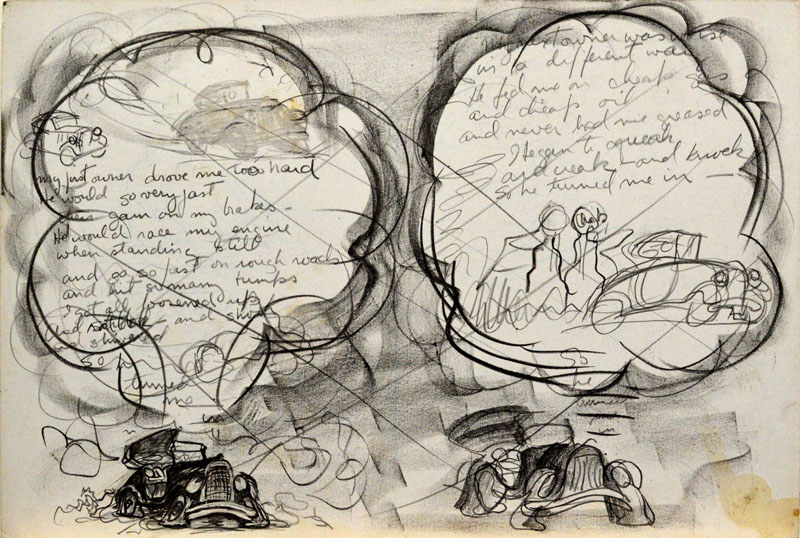 my first owner drove me too hard
He would go very fast
then jam on my brakes -
He would race my engine
when standing still
and go so fast on rough roads
and hit so many bumps
I got all loosened up
had rattles and
so he
turned
me
in
my next owner was wise
in a different way
He fed me on cheap gas
and cheap oil
and never had me greased
I began to squeak
and creak - and knock
so he turned me in -
Cheap
So
he
turned
in